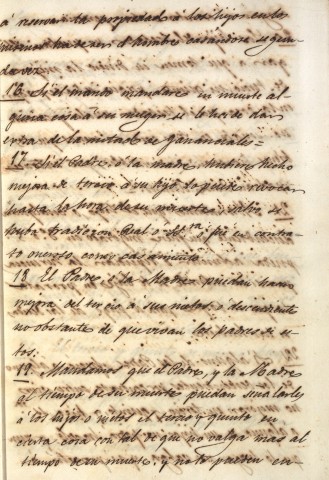 á reservar la propiedad á los hijos en los
mismos terminos el hombre casandose segun
da vez
16. Si el marido mandare en muerte al
guna cosa á su muger se le ha de dar
entra de la mitad de gananciales =
17. Si el Padre ó la madre hubiere hecho
mejora de tercio á su hijo la puede revocar
hasta la hora de su muerte, salvo si
hubo tradicion Real ó fué en contra-
to oneroso, como casamiento.
18. El Padre ó la Madre puedan hacer
mejora del tercio á sus nietos ó descendientes
no obstante de que vivan los padres de es-
tos.
19. Mandamos que el Padre, y la Madre
al tiempo de su muerte puedan señalarles
á los hijos ó nietos el tercio y quinto en
cierta cosa con tal de que no valga mas al
tiempo de su muerte; y no lo pueden en-